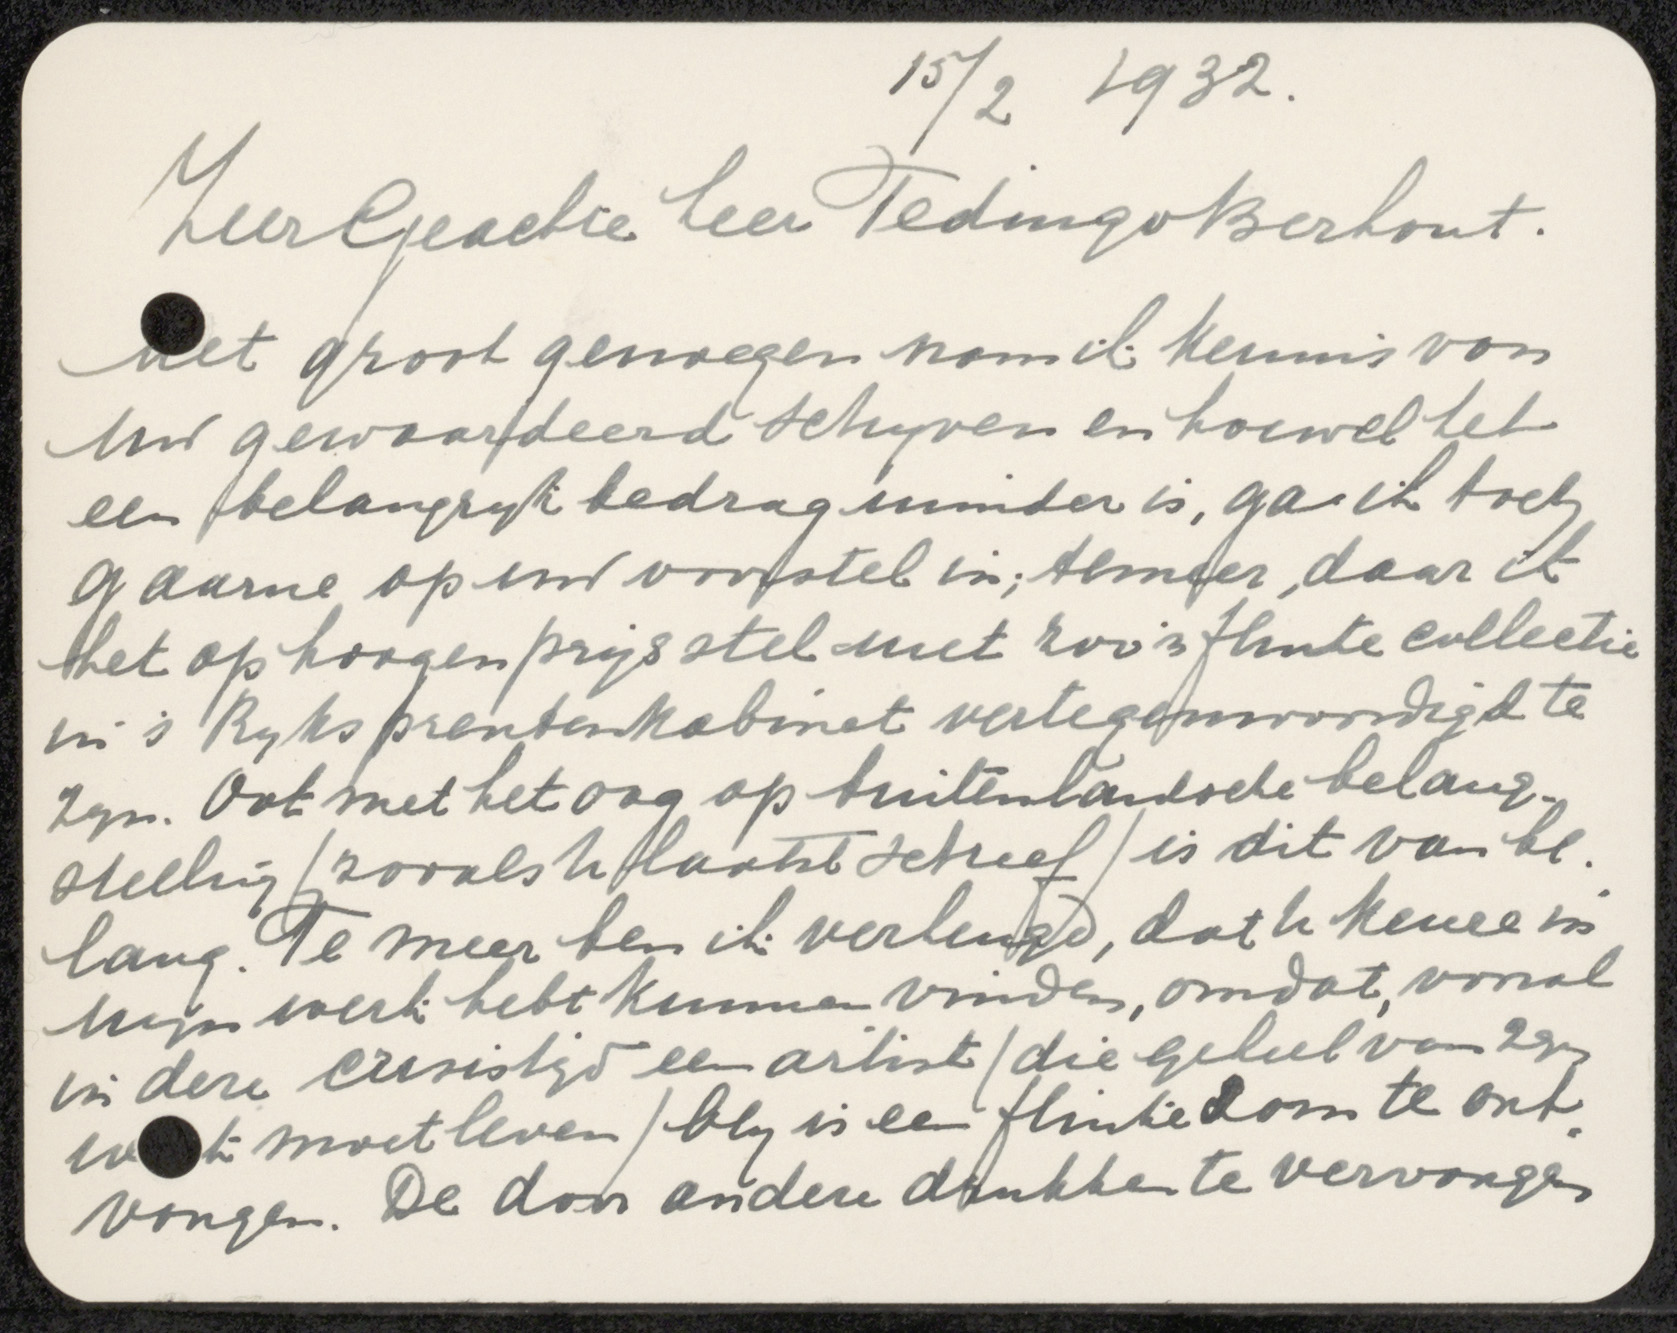 15/2 1932.
Zeer Geachte heer Tedingv Berhout.
met groot genoegen nam ik kennis van
uw gewaardeerd schrijven en hoewel het
een belangrijk bedrag minder is, ga ik toch
gaarne op uw voorstel in; temeer, daar ik
het op hoogen prijs stel met zoo'n flinke collectie
in 's Ryks prentenkabinet vertegenwoordigd te
zyn. Ook met het oog op buitenlandsche belang-
stelling / zooals U laatst schreef / is dit van be-
lang. Te meer ben ik verheugd, dat U keuze in
mijn werk hebt kunnen vinden, omdat, vooral
in deze crisistijd een artist / die geheel van zyn
werk moet leven / bly is een flinke som te ont-
vangen. De door andere drukken te vervangen